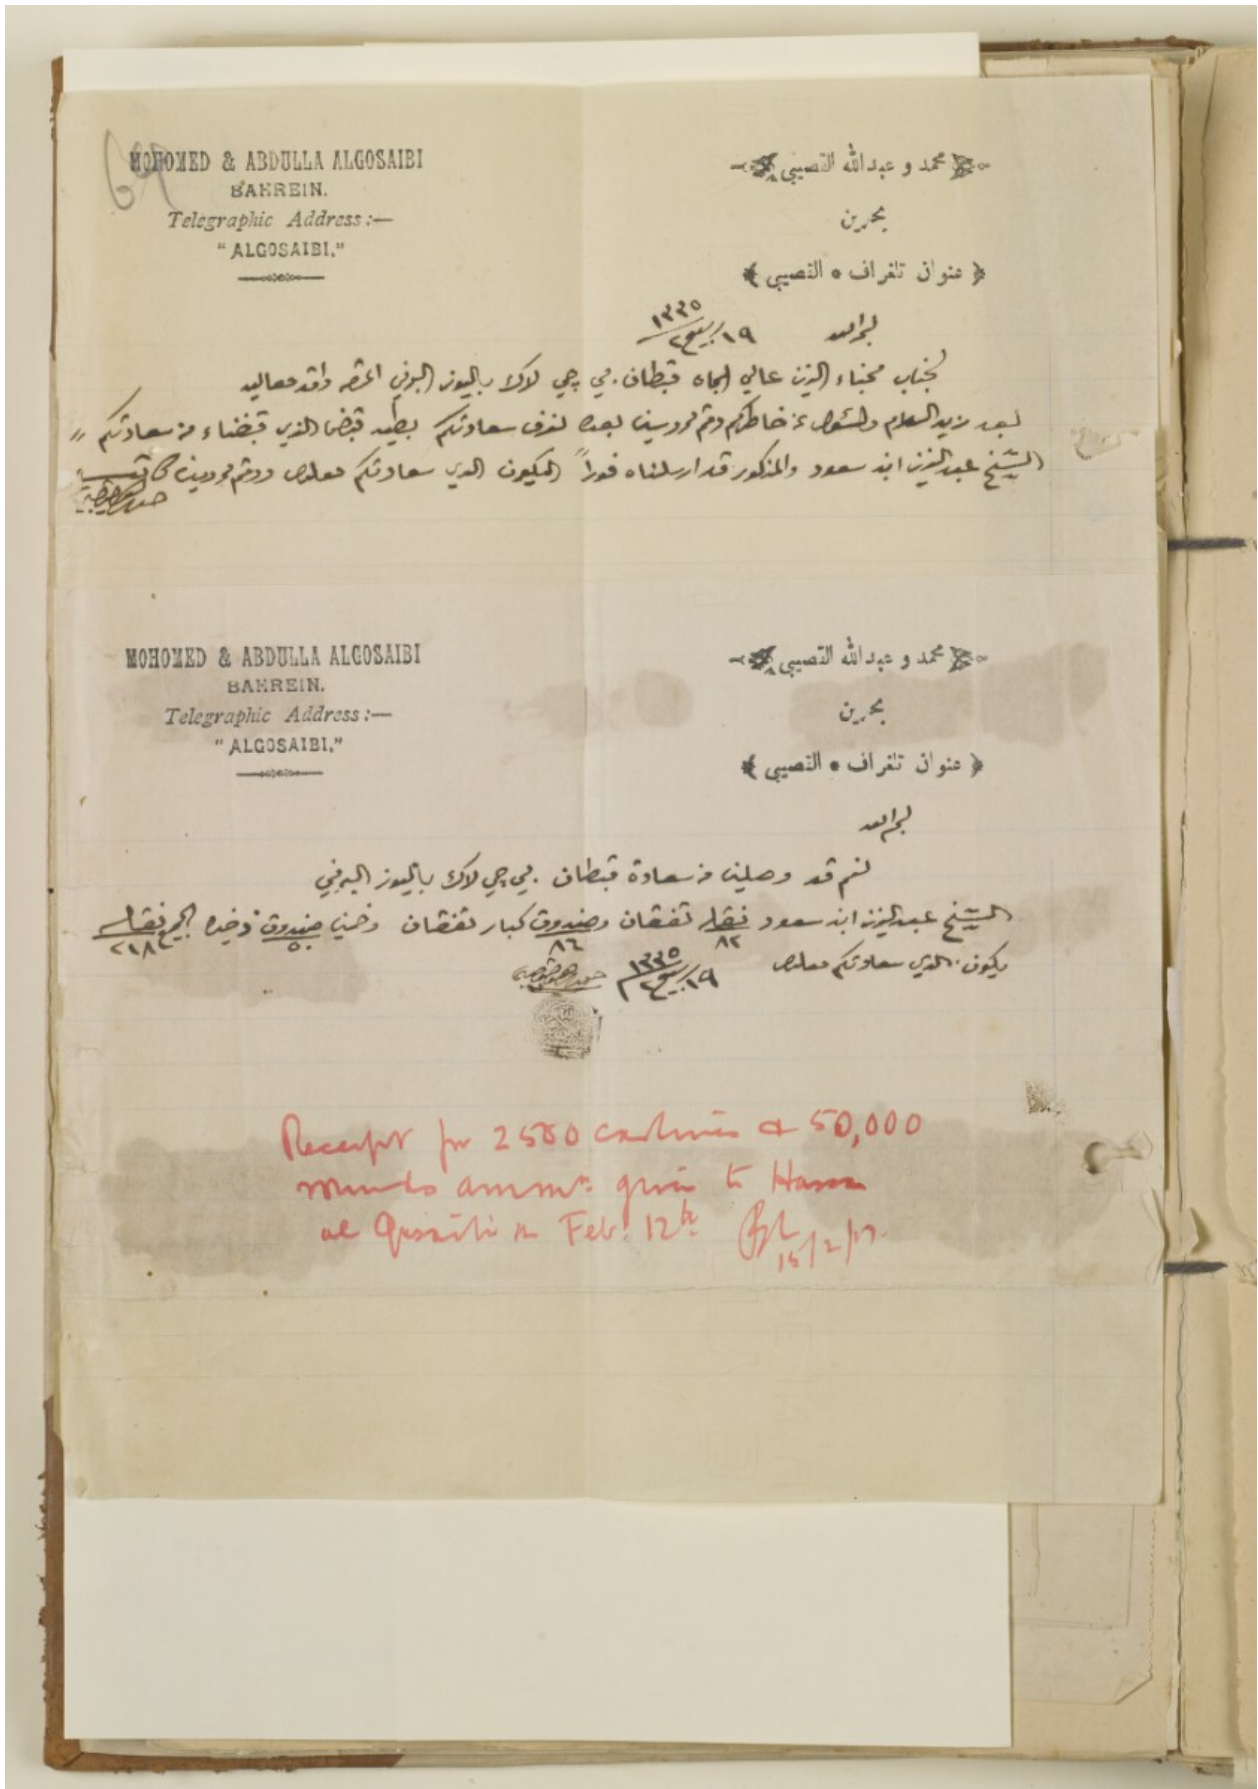 69
MOHOMED & ABDULLA ALGOSAIBI
BAHREIN.
Telegraphic Address:—
"ALGOSAIBI."
محمد و عبدالله القصيبي
بحرين
﴿ عنوان تلغراف • القصيبي ﴾
١٩ ربيع٢ ١٣٣٥
لجناب محبناء العزيز عالي الجاه قبطان. بي جي لاك باليوز
بعد مزيد السلام خاطركم بعده نعرف سعادتكم قبض الذي قبضناء من سعادتكم
الشيخ عبدالعزيز ابن سعود والمذكور قد ارسلناه فوراً ليكون لدي سعادتكم معلوم ودمتم محروسين
MOHOMED & ABDULLA ALGOSAIBI
BAHREIN.
Telegraphic Address:—
"ALGOSAIBI."
محمد و عبدالله القصيبي
بحرين
﴿ عنوان تلغراف • القصيبي ﴾
نعم قد وصلين من سعادة قبطان. بي جي لاك باليوز
الشيخ عبدالعزيز ابن سعود ٨٢ تفقان وصندوق ٨٦ كبار تفقان وخمسين صندوق ٥٠ ذخيره الجميع ٢١٨
يكون لدي سعادتكم معلوم ١٩ ربيع٢ ١٣٣٥
Receipt for 2500 carbines & 50,000
rounds ammn. given to Hassan
al Qusaibi on Feb: 12th
15/2/17.